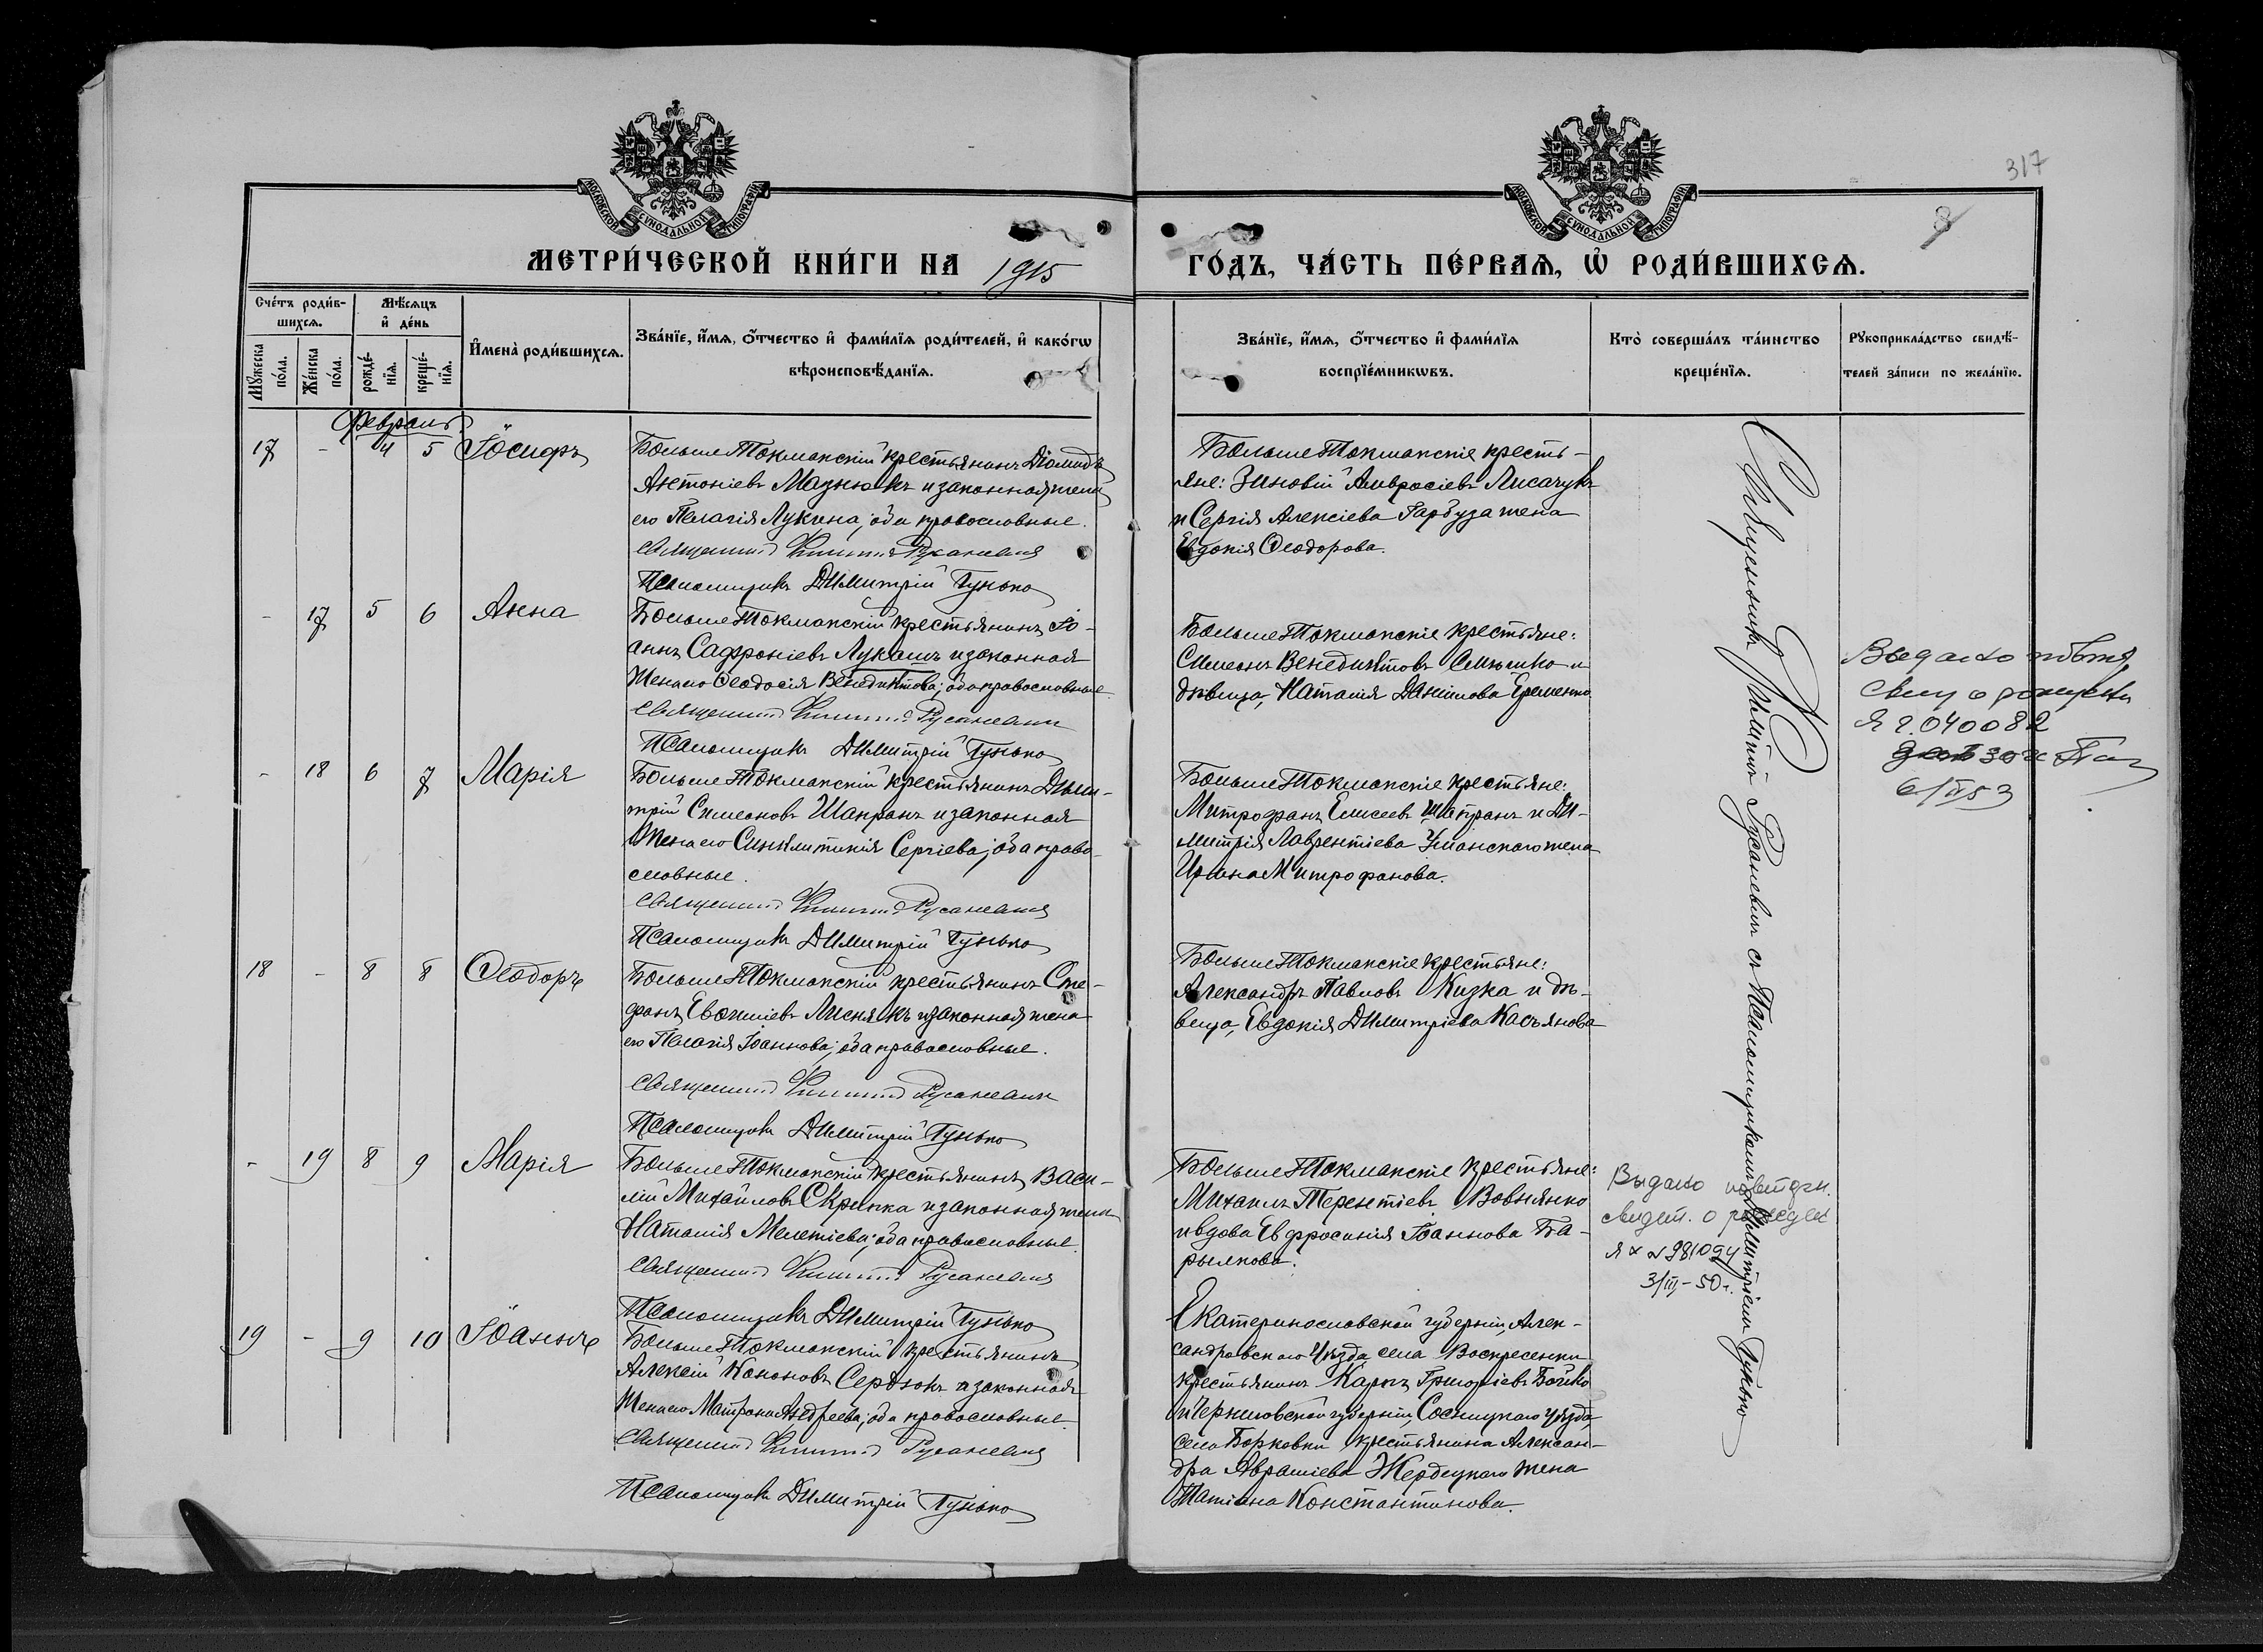 317
8
МОСКОВСКОЙ СУНОДАЛЬНОЙ ТИПОГРАФІИ
МОСКОВСКОЙ СУНОДАЛЬНОЙ ТИПОГРАФІИ
МЕТРИ́ЧЕСКОЙ КНИ́ГИ НА 1915 ГО́ДЪ, ЧА́СТЬ ПЕ́РВАѦ, Ѡ҆ РОДИ́ВШИХСѦ.
Сче́тъ роди́в-
шихсѧ.
Мꙋ́жеска
по́ла.
Же́нска
по́ла.
Мѣ́сѧцъ
и҆ де́нь
рожде́-
нїѧ.
креще́-
нїѧ.
И҆мена̀ роди́вшихсѧ.
Зва́нїе, и҆́мѧ, ѻ҆́тчество и҆ фами́лїѧ роди́телей, и҆ како́гѡ
вѣроисповѣ́данїѧ.
Зва́нїе, и҆́мѧ, ѻ҆́тчество и҆ фами́лїѧ
воспрїе́мникѡвъ.
Кто̀ соверша́лъ та́инство
креще́нїѧ.
Рꙋкоприкла́дство свидѣ́-
телей за́писи по жела́нїю.
Февраль
17 - 4 5 Іосифъ
БольшеТокмакскій крестьянинъ Діомидъ
Антоніевъ Мазнюкъ и законная жена
его Пелагія Лукина; оба православные.
Священникъ Русаневичъ
Псаломщикъ Димитрій Гунько
БольшеТокмакскіе кресть-
яне: Зиновій Амвросіевъ Лисачукъ
и Сергія Алексіева Гарбуза жена
Евдокія Ѳеодорова.
- 17 5 6 Анна
БольшеТокмакскій крестьянинъ Іо-
аннъ Сафроніевъ Лукашъ и законная
жена его Ѳеодосія Венедиктова; оба православные
Священникъ Русаневичъ
Псаломщикъ Димитрій Гунько
БольшеТокмакскіе крестьяне:
Симеонъ Венедиктовъ и
дѣвица, Наталія Данилова Еременко
Выдано повтор
040082
6/II 53
- 18 6 7 Марія
БольшеТокмакскій крестьянинъ Дими-
трій Симеоновъ Шапранъ и законная
жена его Синклитикія Сергіева; оба право-
славные.
Священникъ Русаневичъ
Псаломщикъ Димитрій Гунько
БольшеТокмакскіе крестьяне:
Митрофанъ Елисеевъ Шапранъ и Ди-
митрія Лаврентіева Уманскаго жена
Ирина Митрофанова.
18 - 8 8 Ѳеодоръ
БольшеТокмакскій крестьянинъ Сте-
фанъ Евѳиміевъ Лиснякъ и законная жена
его Пелагія Іоаннова; оба православные.
Священникъ Русаневичъ
Псаломщикъ Димитрій Гунько
БольшеТокмакскіе крестьяне:
Александръ Павловъ Кизка и дѣ-
вица, Евдокія Димитріева Касьянова
- 19 8 9 Марія
БольшеТокмакскій крестьянинъ Васи-
лій Михайловъ Скрипка и законная жена
Наталія Мелетіева; оба православные.
Священникъ Русаневичъ
Псаломщикъ Димитрій Гунько
БольшеТокмакскіе крестьяне:
Михаилъ Терентіевъ Вовнянко
и вдова Евфросинія Іоаннова Ба-
рылкова.
Выдано повторн.
свидет. о рожден
981094
3/III-50г.
19 - 9 10 Іоаннъ
БольшеТокмакскій крестьянинъ
Алексій Кононовъ Сердюкъ и законная
жена его Матрона Андреева; оба православные
Священникъ Русаневичъ
Псаломщикъ Димитрій Гунько
Екатеринославской губерніи, Алек-
сандровскаго уѣзда села Воскресенки
крестьянинъ Карпъ Григоріевъ Бойко
и Черниговской губерніи, Сосницкаго уѣзда,
села Борковки крестьянина Алексан-
дра Авраміева Жердецкаго жена
Татіана Константинова.
Священникъ Русаневичъ съ Псаломщикомъ Димитріемъ Гунько